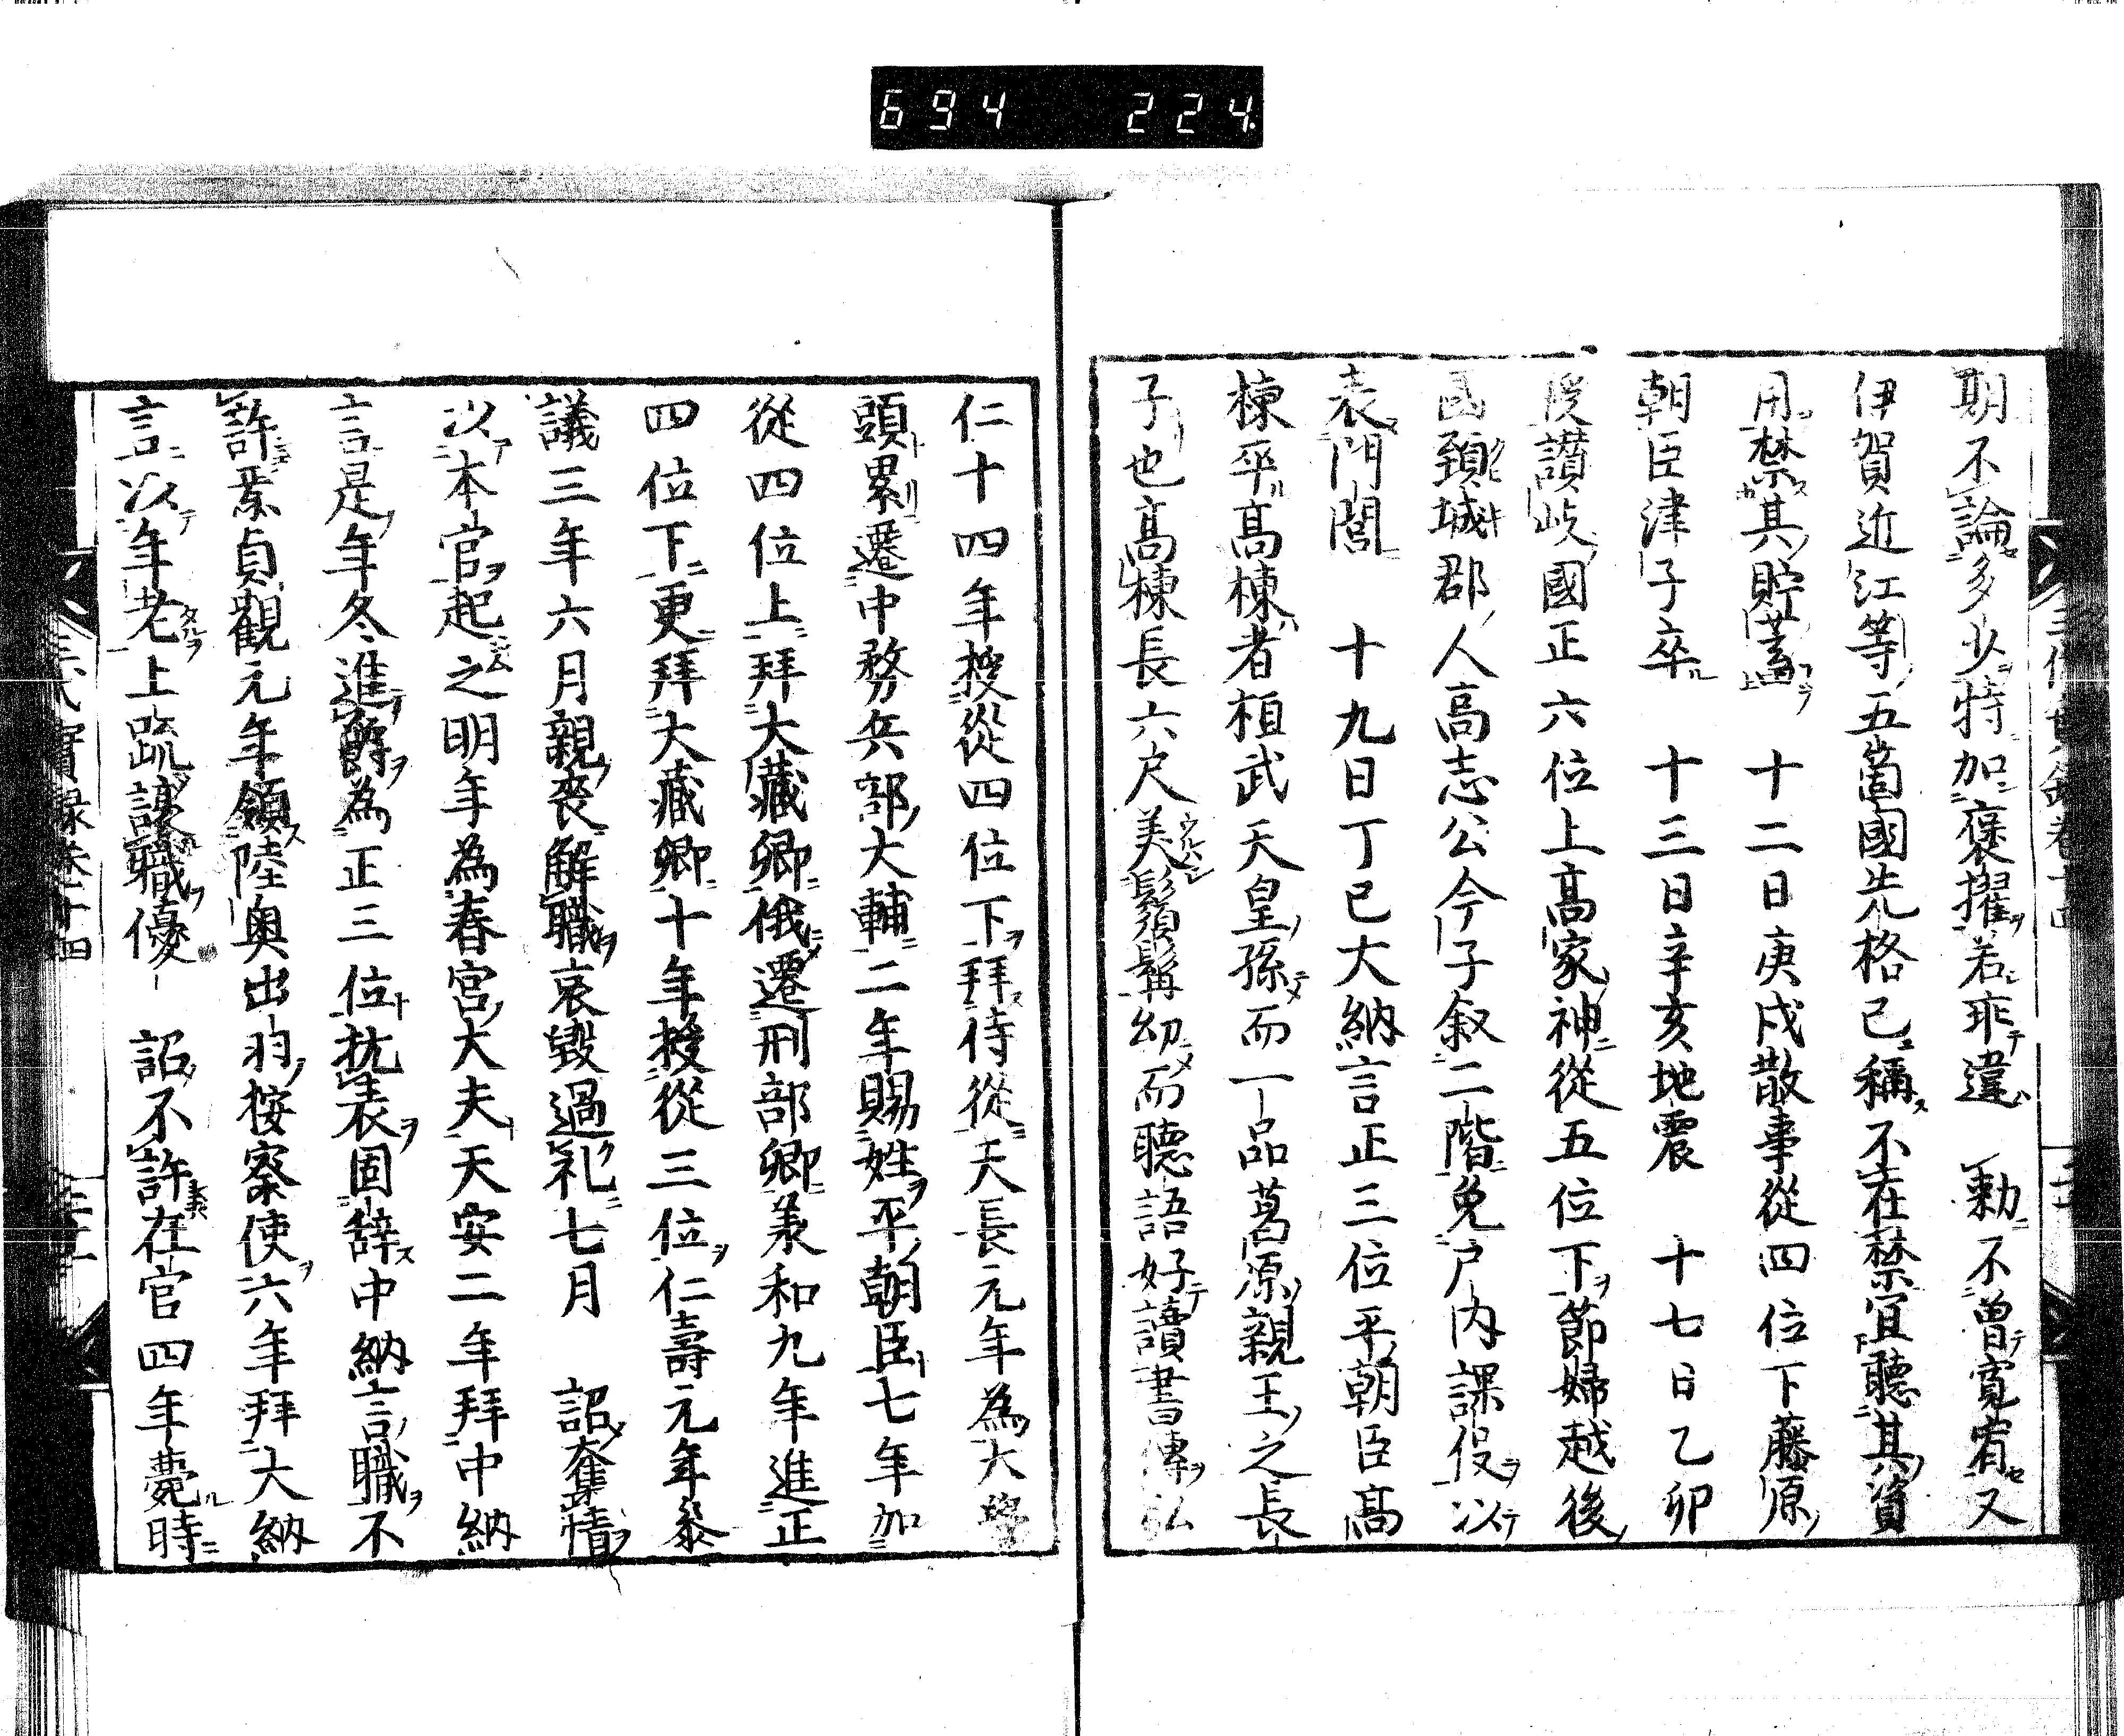 694 224
期不論多少特加褒擢若乖違 勅不曽寛宥又
伊賀近江等五箇國先格已稱不在禁宜聽其資
用禁其貯蓄 十二日庚戌散事從四位下藤原
朝臣津子卒 十三日辛亥地震 十七日乙卯
授讃岐國正六位上髙家神從五位下節婦越後
國頚城郡人高志公今子叙二階免戸内課役以
表門閭 十九日丁巳大納言正三位平朝臣髙
棟卒髙棟者桓武天皇孫而一品葛原親王之長
子也髙棟長六尺美鬚髯幼而聽語好讀書傳弘
仁十四年授從四位下拜侍從天長元年為大學
頭累遷中務兵部大輔二年賜姓平朝臣七年加
從四位上拜大藏卿俄遷刑部卿羕和九年進正
四位下更拜大藏卿十年授從三位仁壽元年叅
議三年六月親喪解職哀毀過礼七月 詔奪情
以本官起之明年為春宮大夫天安二年拜中納
言是年冬進爵為正三位抗表固辞中納言職不
許焉貞觀元年領陸奥出羽按察使六年拜大納
言以年老上疏讓職優 詔不許在官四年薨時